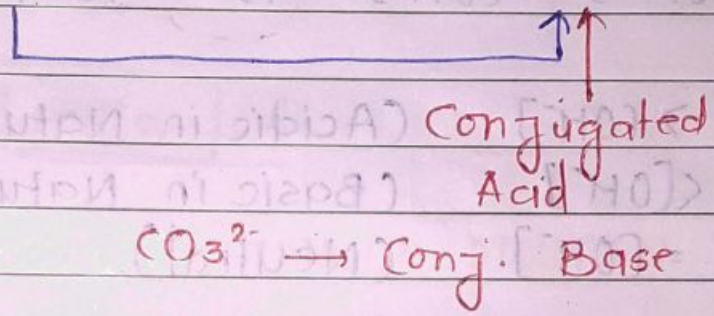 Conjugated
Acid
CO3²⁻ → Conj. Base